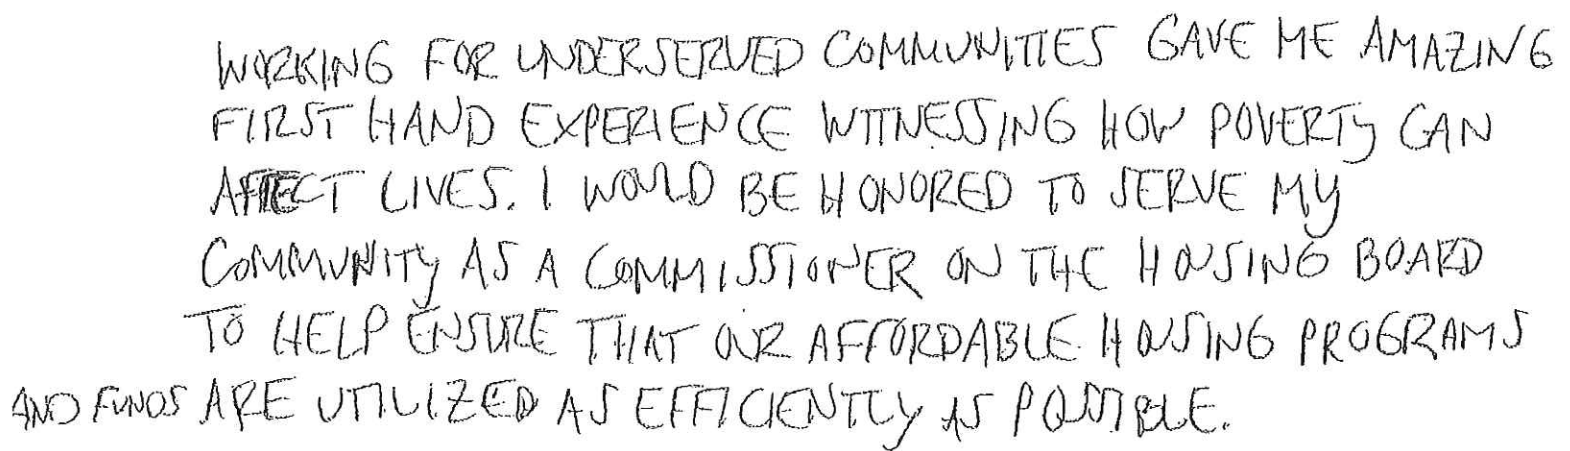 WORKING FOR UNDERSERVED COMMUNITIES GAVE ME AMAZING
FIRST HAND EXPERIENCE WITNESSING HOW POVERTY CAN
AFFECT LIVES. I WOULD BE HONORED TO SERVE MY
COMMUNITY AS A COMMISSIONER ON THE HOUSING BOARD
TO HELP ENSURE THAT OUR AFFORDABLE HOUSING PROGRAMS
AND FUNDS ARE UTILIZED AS EFFICIENTLY AS POSSIBLE.